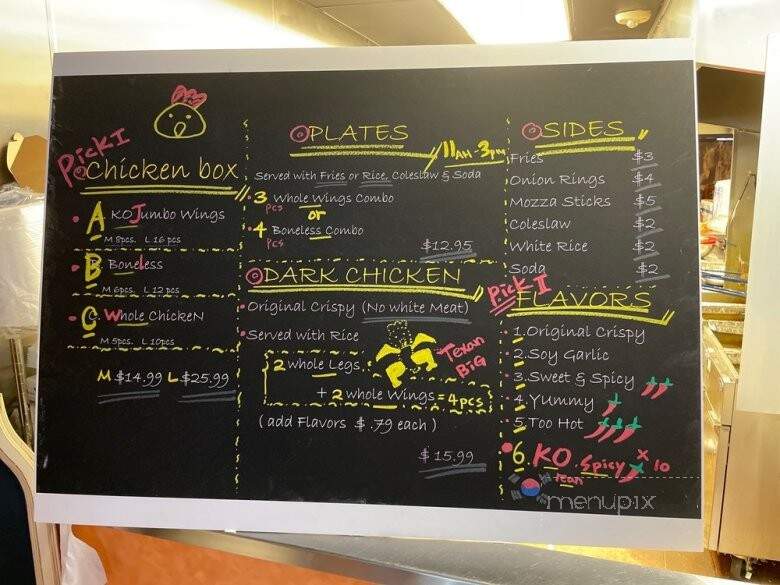 Pick 1
Chicken box
A KOJumbo Wings
M 8pcs. L 16 pcs
B Boneless
M 6pcs. L 12 pcs
C. Whole Chicken
M 5pcs. L 10pcs
M $14.99 L $25.99
PLATES
11AM-3pm
Served with Fries or Rice, Coleslaw & Soda
3 Whole Wings Combo
pcs
or
4 Boneless Combo
pcs
$12.95
DARK CHICKEN
Original Crispy (No white Meat)
Served with Rice
Texan BIG
2 whole Legs
+ 2 whole Wings = 4pcs
(add Flavors $.79 each)
$15.99
SIDES
Fries $3
Onion Rings $4
Mozza Sticks $5
Coleslaw $2
White Rice $2
Soda $2
Pick 1
FLAVORS
1.Original Crispy
2.Soy Garlic
3.Sweet & Spicy
4.Yummy
5.Too Hot
6.KO.Spicy x 10
rean
menupix